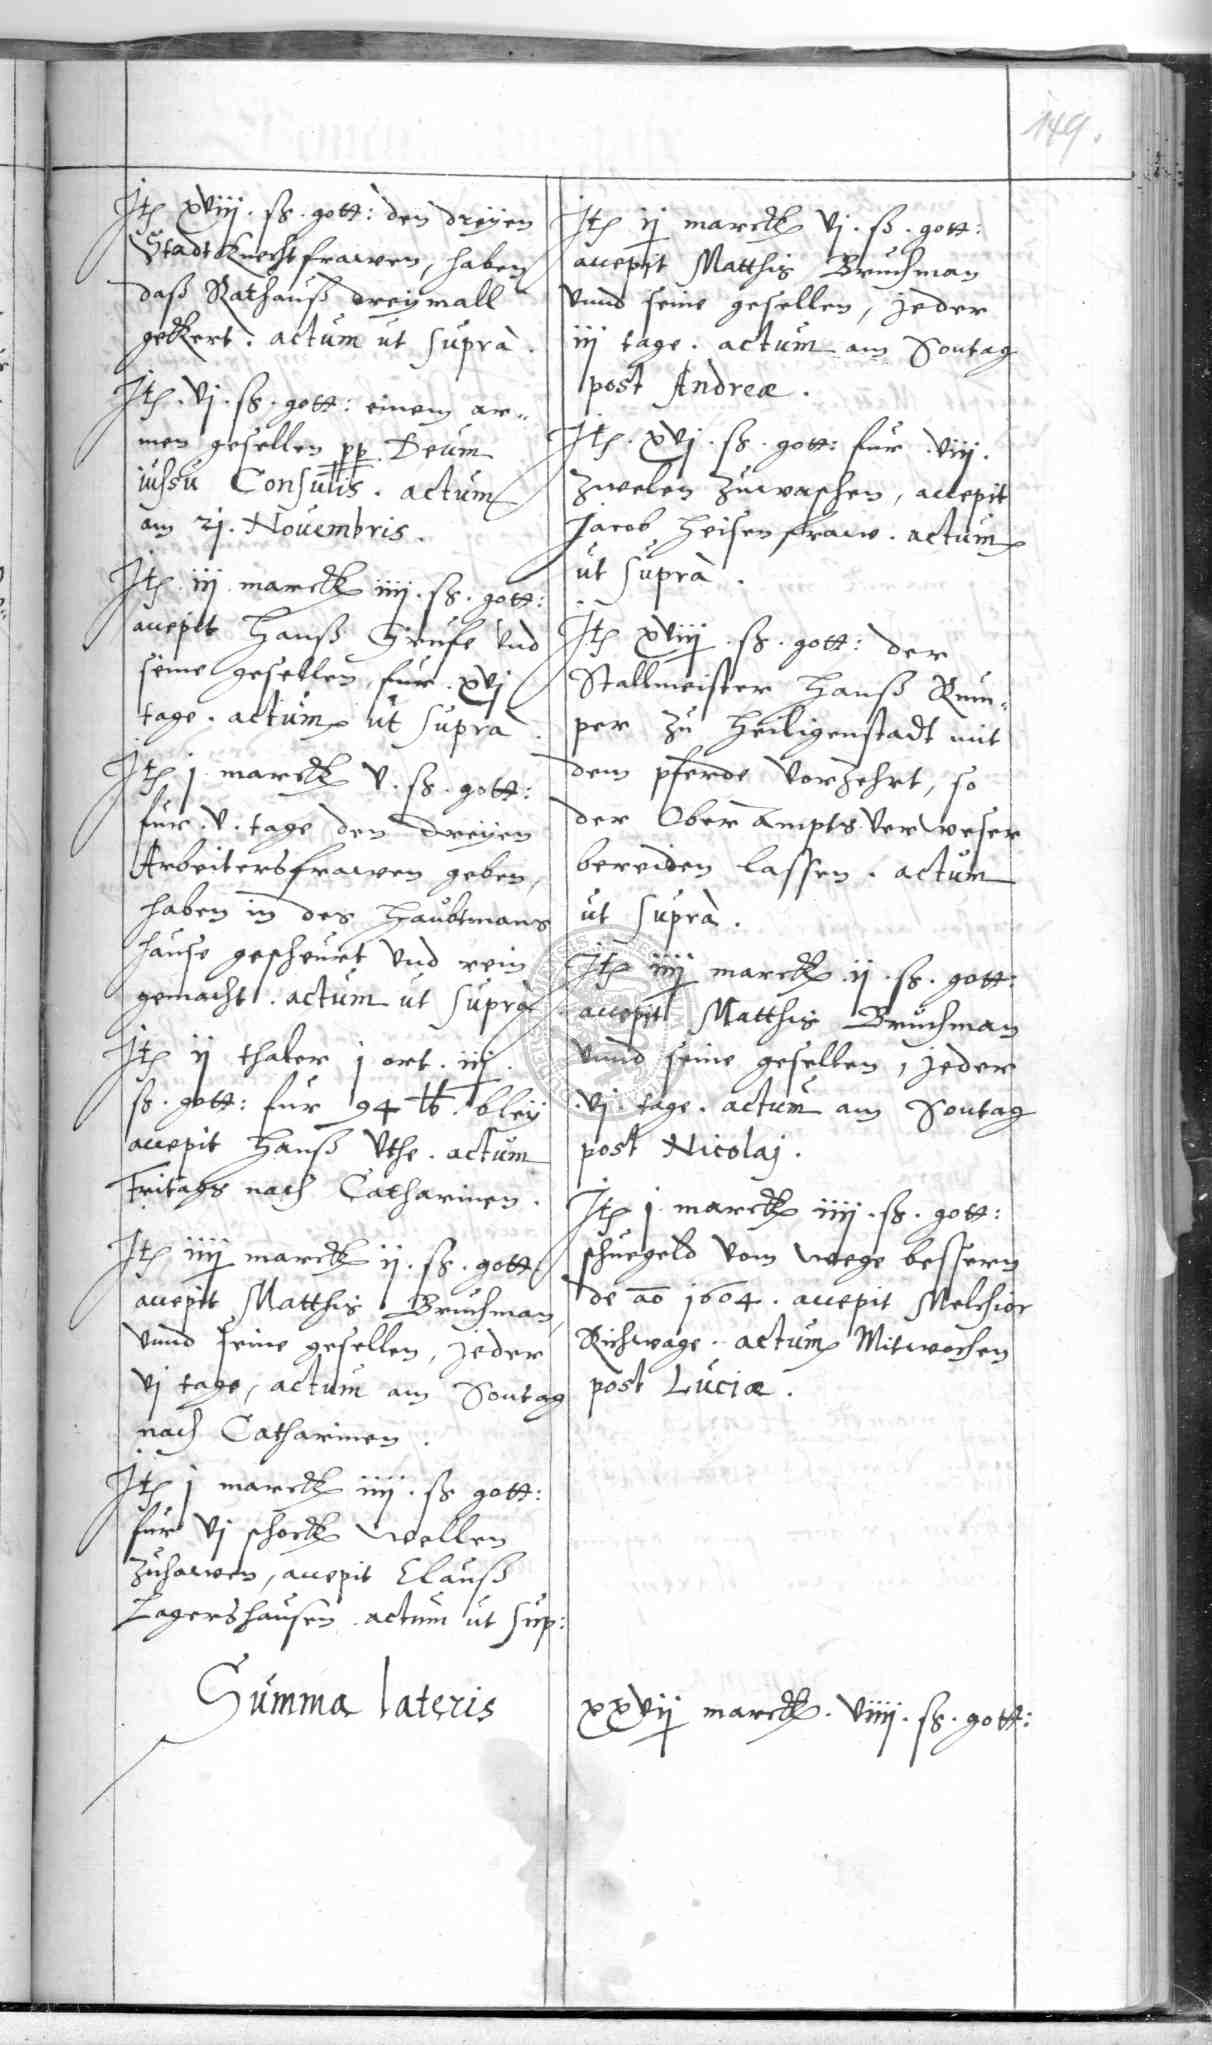 149.
Itē xviij . ß . gott: den dreÿen
Stadtknecht frawen, haben
daß Rathauß dreÿmall
gekert . actum ut suprà .
Itē . vj . ß . gott: einem ar„
men gesellen pp Deum
iussu Consulis . actum
am 21. Nouembris .
Itē . iij . marck iiij . ß . gott:
accepit Hanß Grufe vnd
seine gesellen, fur . xvj
tage . actum ut suprà .
Itē j . marck v . ß . gott:
fur . v . tage den dreÿen
Arbeitersfrawen geben,
haben in des Haubtmans
hause gescheuret vnd rein
gemacht . actum ut suprà
Itē ij thaler j ort . iij .
ß . gott: fur 94 lb . bleÿ
accepit Hanß Vthe . actum
Fritags nach Catharinen .
Itē iiij marck ij . ß . gott
accepit Matthis Bruchman,
vnnd seine gesellen, jeder
vj tage, actum am Sontag
nach Catharinen .
Itē j marck iiij . ß gott:
fur vj schock wellen
zuhawen, accepit Clauß
Lagershausen . actum ut sup:
Summa lateris
Itē ij marck vj . ß . gott:
accepit Matthis Bruchman
vnnd seine gesellen, jeder
iij tage . actum am Sontag
post Andreæ .
Itē . xvj . ß . gott: fur . viij .
zwelen zuwaschen, accepit
Jacob Heisen fraw . actum
ut suprà .
Itē xviij . ß . gott: der
Stallmeister Hanß Rum„
per zu Heiligenstadt mit
dem pferde vorzehrt, so
der Ober Ampts Verweser
bereiden lassen . actum
ut suprà .
Itē iiij marck ij . ß . gott:
accepit Matthis Bruchman
vnnd seine gesellen, jeder
. vj . tage . actum am Sontag
post Nicolaj .
Itē j . marck iiij . ß . gott:
schuegeld vom wege bessern
de ao 1604 . accepit Melchior
Richwage . actum Mitwochen
post Luciæ .
xxvij marck . viiij . ß . gott: